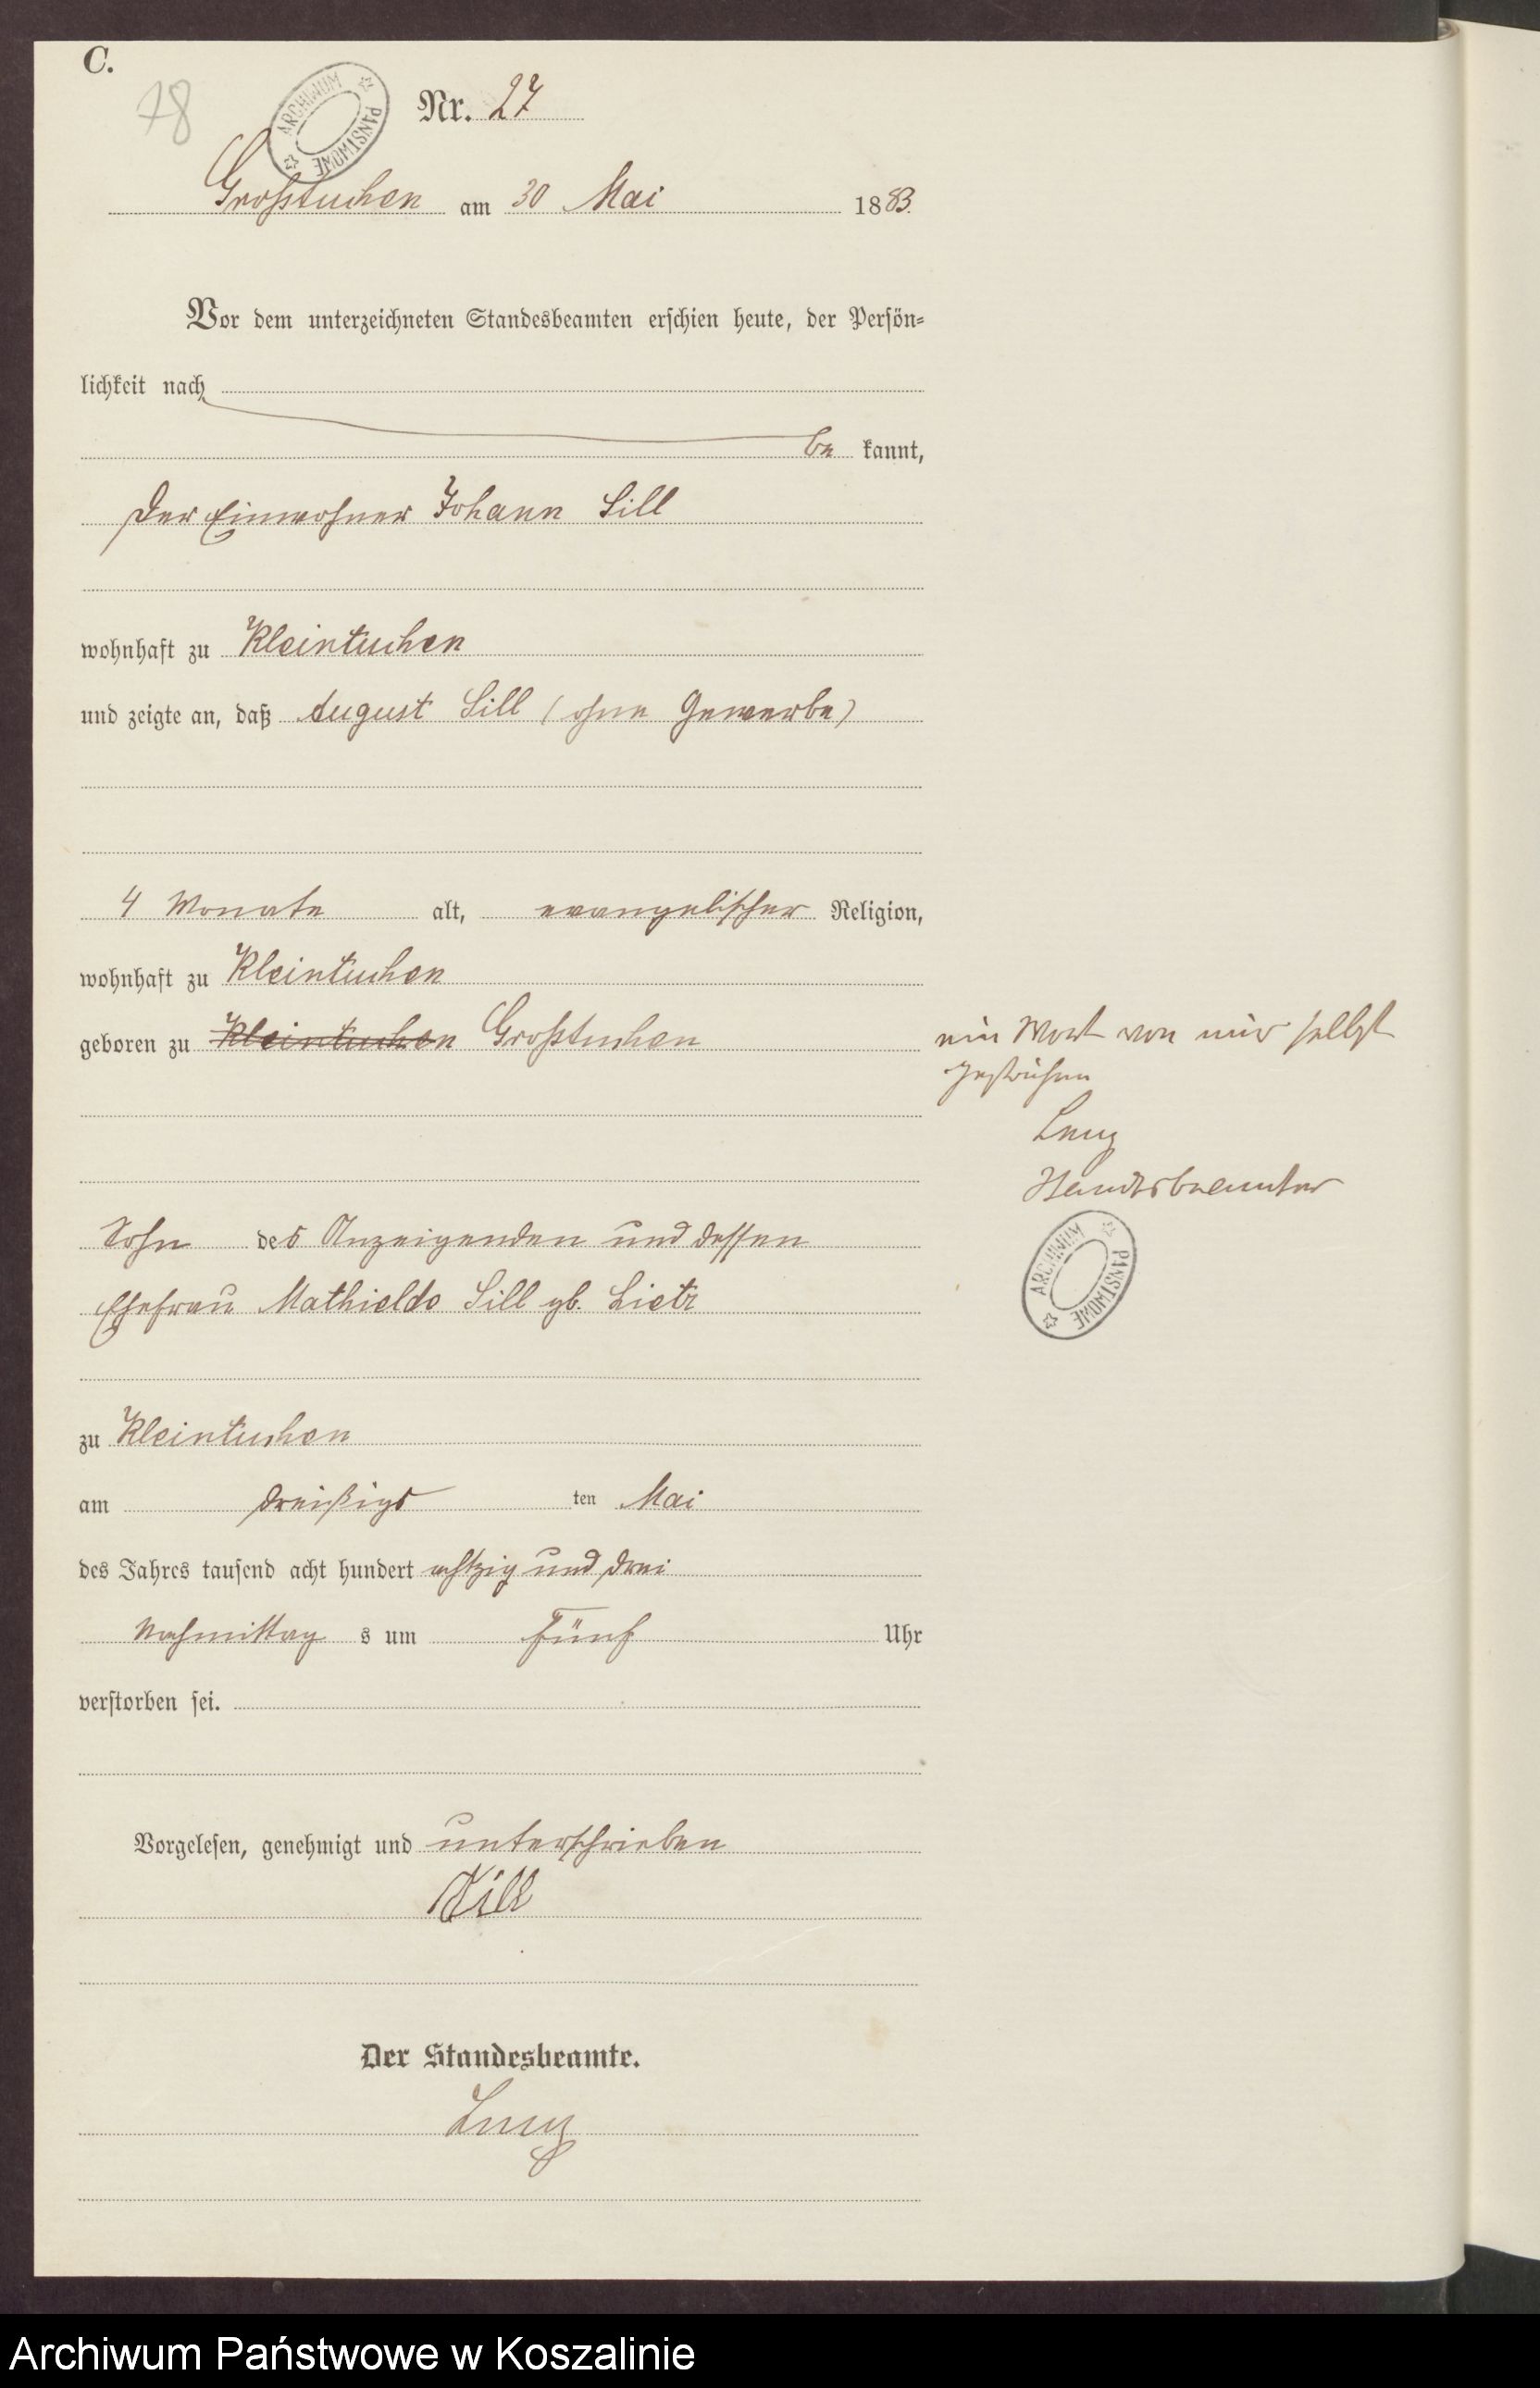 C.
78
ARCHIWUM PAŃSTWOWE
Nr. 27
Großtuchen am 30 Mai 1883.
Vor dem unterzeichneten Standesbeamten erschien heute, der Persön-
lichkeit nach
be kannt,
der Einwohner Johann Sill
wohnhaft zu Kleintuchen
und zeigte an, daß August Sill (ohne Gewerbe)
4 Monate alt, evangelischer Religion,
wohnhaft zu Kleintuchen
geboren zu Kleintuchen Großtuchen
ein Wort von mir selbst
gestrichen
Standesbeamter
ARCHIWUM PAŃSTWOWE
Sohn des Anzeigenden und dessen
Ehefrau Mathielde Sill gb. Lietz
zu Kleintuchen
am dreißigs ten Mai
des Jahres tausend acht hundert achtzig und drei
Nachmittag s um fünf Uhr
verstorben sei.
Vorgelesen, genehmigt und unterschrieben
Sill
Der Standesbeamte.
Archiwum Państwowe w Koszalinie